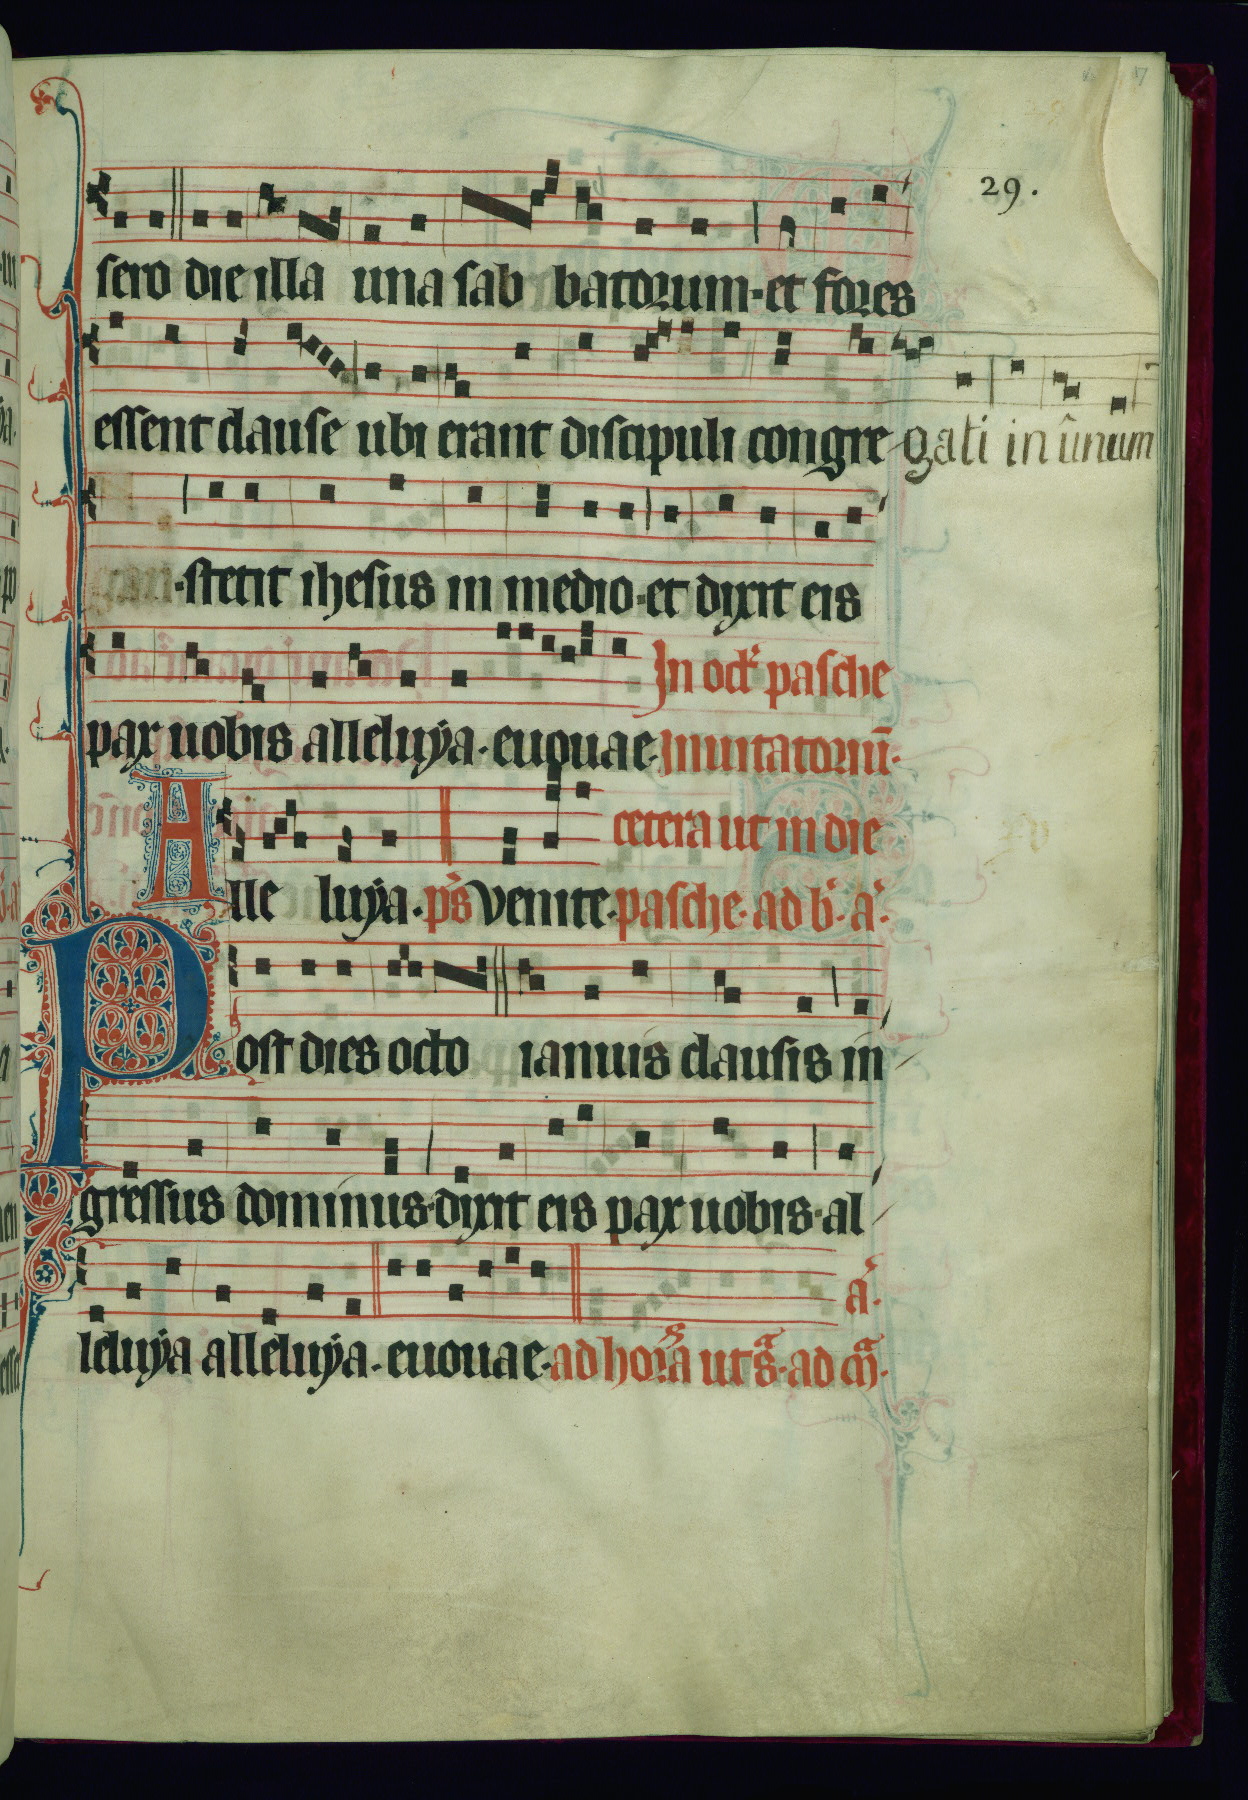 29.
sero die illa una sab batorum · et fores
essent clause ubi erant discipuli congre gati in ûnûm
· stetit ihesus in medio · et dixit eis
In oct' pasche
pax uobis alleluÿa · euouae · Inuitatoriū ·
cetera ut in die
Alle luÿa · ps Venite · pasche · ad b' · a' ·
Post dies octo ianuis clausis in
gressus dominus · dixit eis pax uobis · al
a' ·
leluÿa alleluÿa · euouae · ad horas ut sa · ad m̄a ·